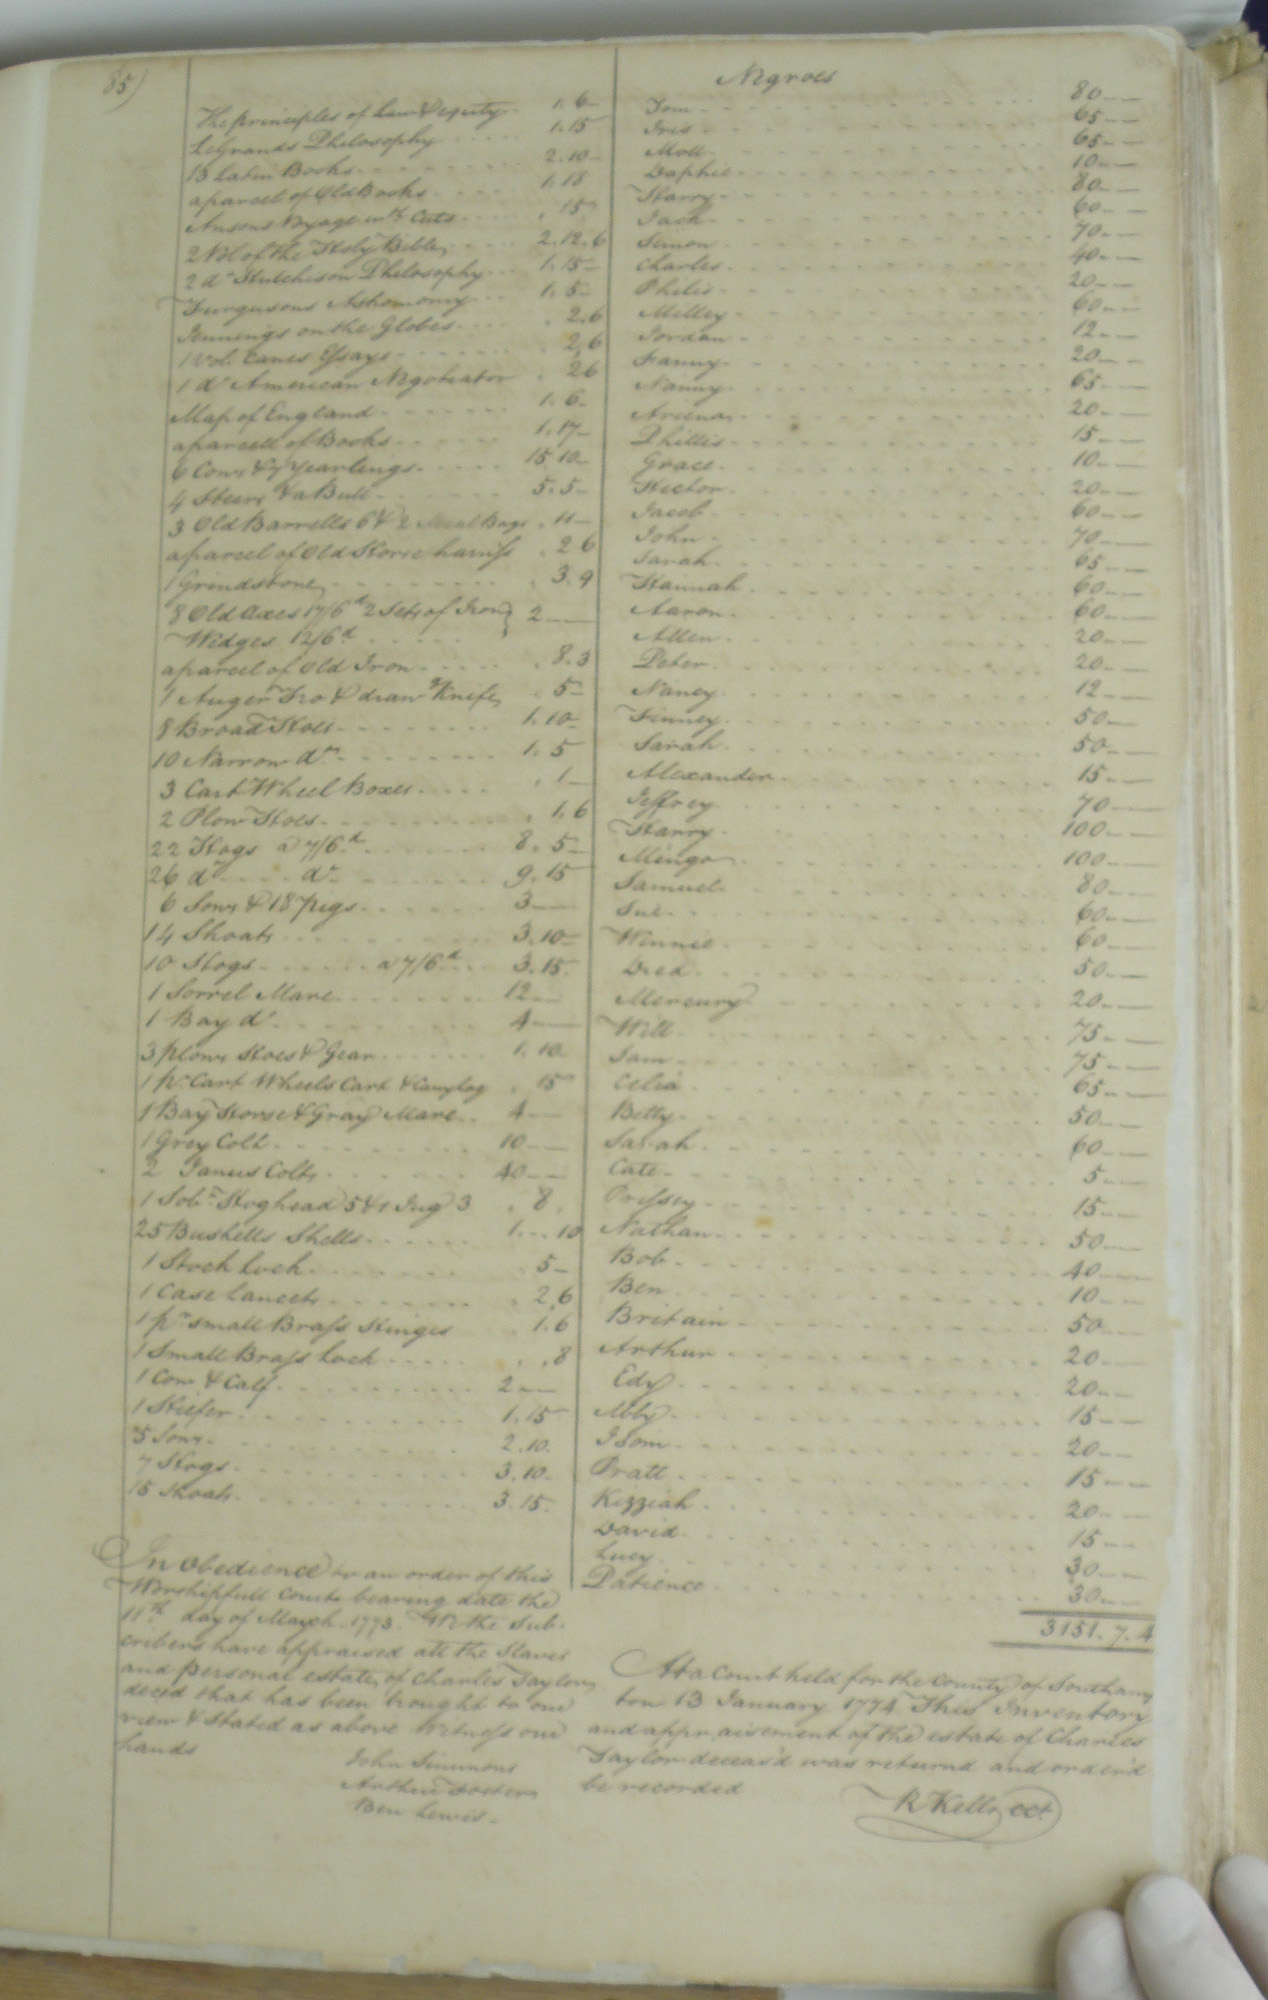 85)
The principles of Law & equity . 1. 6 –
LeGrands Philosophy . . . . 1. 15
13 Latin Books . . . . 2. 10 –
a parcel of Old Books . . . . 1. 18
Ansons Voyage wth Cuts . . . . . 15
2 Vol of the Holy Bible . . . . 2. 12. 6
2 do Hutchison Philosophy . . . 1. 15 –
Furgusons Astronomy . . . 1. 5 –
Jennings on the Globes . . . . . 2. 6
1 Vol. Eanes Essays . . . . 2. 6
1 do American Negotiator . 2 6
Map of England . . . . 1. 6 –
a parcell of Books . . . . 1. 17 –
6 Cows & 7 Yearlings . . . . 15 10 –
4 Steers & a Bull . . . . 5. 5 –
3 Old Barrells 6 & 2 Meal Bags . 11 –
a parcel of Old Horse harness . 2 6
1 Grindstone . . . . . 3. 9
8 Old Axes 17/6d 2 Sets of Iron } 2 – –
Widges 12/6d . . . .
a parcel of Old Iron . . . . . 8. 3
1 Auger Fro & draw Knife . 5 –
8 Broad Hoes . . . . 1. 10 –
10 Narrow do . . . . 1. 5
3 Cart Wheel Boxes . . . . . 1 –
2 Plow Hoes . . . . . 1. 6
22 Hogs a 7/6d . . . . 8. 5 –
26 do . . . do . . . . 9. 15
6 Sows & 18 pigs . . . . 3 – –
14 Shoats . . . . 3. 10 –
10 Hogs . . . . a 7/6d . . . 3. 15
1 Sorrel Mare . . . . 12 – –
1 Bay do . . . . 4 – –
3 plows Hoes & Gear . . . . 1. 10
1 pr Cart Wheels Cart & . 15
1 Bay Horse & Gray Mare . . 4 – –
1 Grey Colt . . . . 10 – –
2 Janus Colts . . . . 40 – –
1 Hoghead 5 & 1 Jug 3 . 8 .
25 Bushells Shells . . . . 1. . . 10
1 Stock Lock . . . . 5 –
1 Case Lancets . . . . . 2. 6
1 pr small Brass Hinges . 1. 6
1 Small Brass Lock . . . . . . 8
1 Cow & Calf . . . . 2 – –
1 Heifer . . . . 1. 15
5 Sows . . . . 2. 10.
7 Hogs . . . . 3. 10.
15 Shoats . . . . 3. 15.
In Obedience to an order of this
Worshipfull Court bearing date the
11th day of March 1773. We the Sub-
cribers have appraised all the Slaves
and personal estate of Charles Taylor
decsd that has been brought to our
view & Stated as above Witness our
hands
John Simmons
Arthur Foster
Ben Lewis.
Negroes
Tom . . . . 80 – –
Iris . . . . 65 – –
Moll . . . . 65 – –
Daphie . . . . 10 – –
Harry . . . . 80 – –
Jack . . . . 60 – –
Simon . . . . 70 – –
Charles . . . . 40 – –
Philis . . . . 20 – –
Milley . . . . 60 – –
Jordan . . . . 12 – –
Fanny . . . . 20 – –
Nanny . . . . 65 – –
Arcena . . . . 20 – –
Phillis . . . . 15 – –
Grace . . . . 10 – –
Hector . . . . 20 – –
Jacob . . . . 60 – –
John . . . . 70 – –
Sarah . . . . 65 – –
Hannah . . . . 60 – –
Aaron . . . . 60 – –
Allen . . . . 20 – –
Peter . . . . 20 – –
Nancy . . . . 12 – –
Finney . . . . 50 – –
Sarah . . . . 50 – –
Alexander . . . . 15 – –
Jeffrey . . . . 70 – –
Harry . . . . 100 – –
Mingo . . . . 100 – –
Samuel . . . . 80 – –
Sue . . . . 60 – –
Winnie . . . . 60 – –
Dred . . . . 50 – –
Mercury . . . . 20 – –
Will . . . . 75 – –
Sam . . . . 75 – –
Celia . . . . 65 – –
Betty . . . . 50 – –
Sarah . . . . 60 – –
Cate . . . . 5 – –
Prissey . . . . 15 – –
Nathan . . . . 50 – –
Bob . . . . 40 – –
Ben . . . . 10 – –
Britain . . . . 50 – –
Arthur . . . . 20 – –
Edy . . . . 20 – –
Abby . . . . 15 – –
Isom . . . . 20 – –
Pratt . . . . 15 – –
Kizziah . . . . 20 – –
David . . . . 15 – –
Lucy . . . . 30 – –
Patience . . . . 30 – –
3151. 7. 4
At a Court held for the County of Southamp
ton 13 January 1774 This Inventory
and appraisement of the estate of Charles
Taylor deceas'd was returnd and order'd
be recorded
R Kello CCt